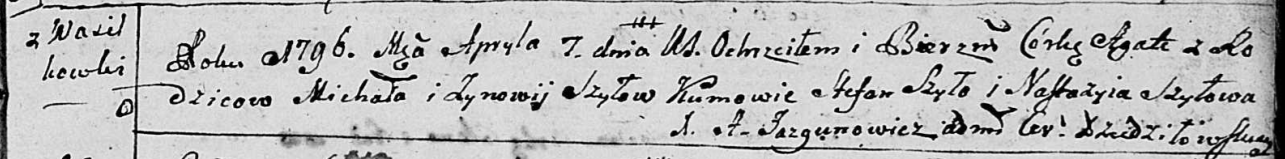 z Wasil
kowki
Roku 1796. Mca Apryla 7. dnia Ochrzciłem i Bierzm Córkę Agatę z Ro
dzicow Michała i Zynowij Szyłow Kumowie Stefan Szyło i Nastazyia Szyłowa
X. A. Jazgunowicz adm Cer.